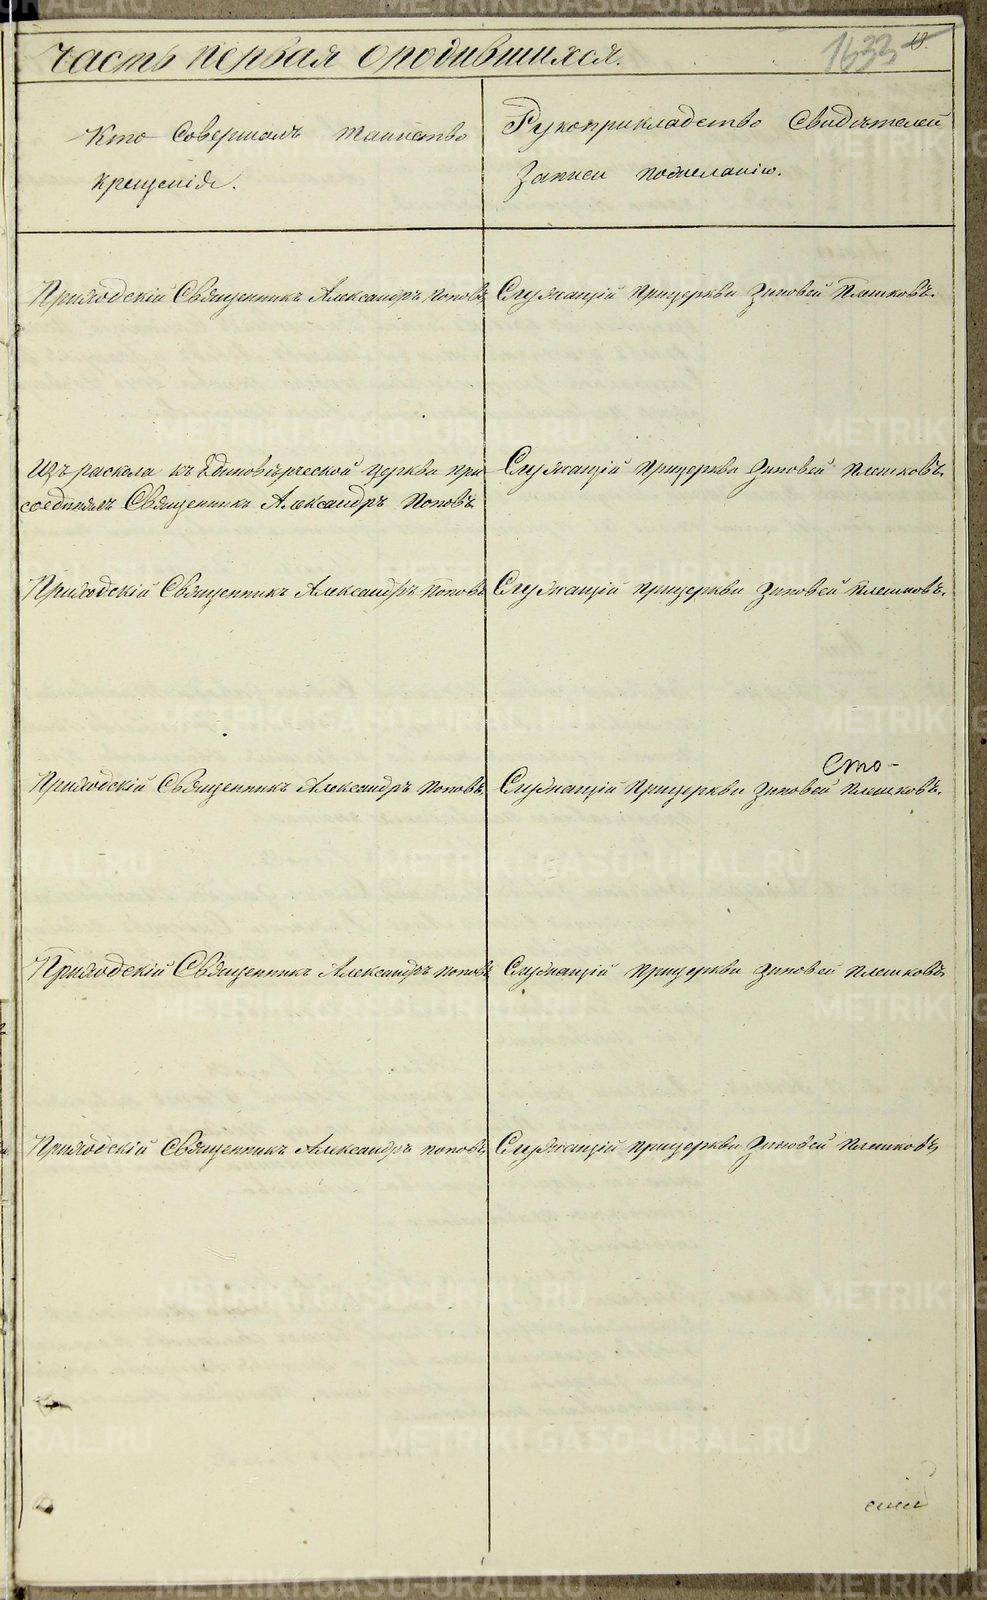 Часть первая о родившихся.
1633
Кто Совершалъ таинство
крещенія.
Рукоприкладство Свидѣтелей
Записи пожеланію.
Приходскій Священникъ Александръ Поповъ
Служащій Прицеркви Зиновей Плешковъ.
Изъ раскола къ Единовѣрческой церкви при
соединялъ Священникъ Александръ Поповъ
Служащій Прицеркви Зиновей Плешковъ.
Приходскій Священникъ Александръ Поповъ
Служащій Прицеркви Зиновей Плешковъ.
Сто-
Приходскій Священникъ Александръ Поповъ
Служащій Прицеркви Зиновей Плешковъ.
Приходскій Священникъ Александръ Поповъ
Служащій Прицеркви Зиновей Плешковъ
Приходскій Священникъ Александръ Поповъ
Служащій Прицеркви Зиновей Плешковъ
METRIKI.GASO-URAL.RU